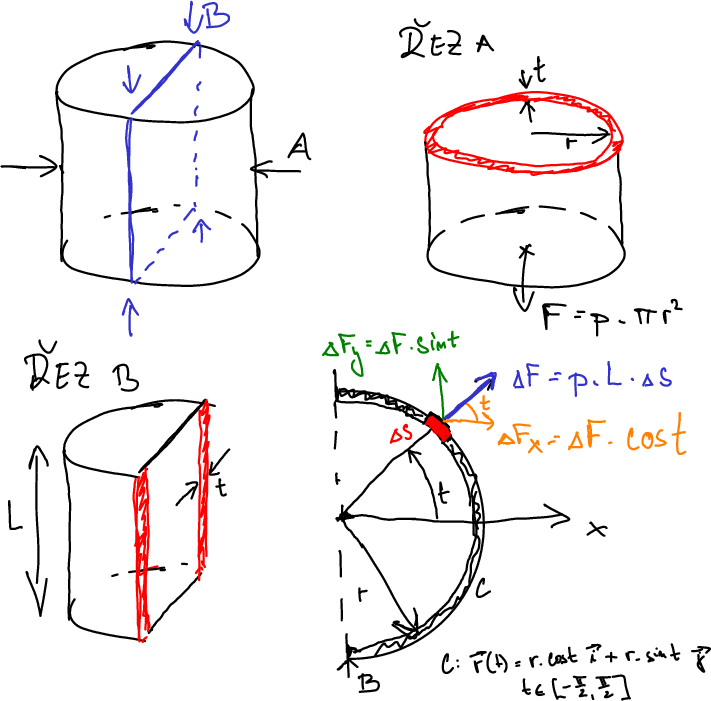 B
A
ŘEZ A
t
r
F = p · πr²
ŘEZ B
L
t
ΔFy = ΔF · sint
ΔF = p · L · Δs
t
ΔFx = ΔF · cost
ΔS
r
t
x
r
C
B
C: r⃗(t) = r · cost i⃗ + r · sint j⃗
t ∈ [-π/2, π/2]